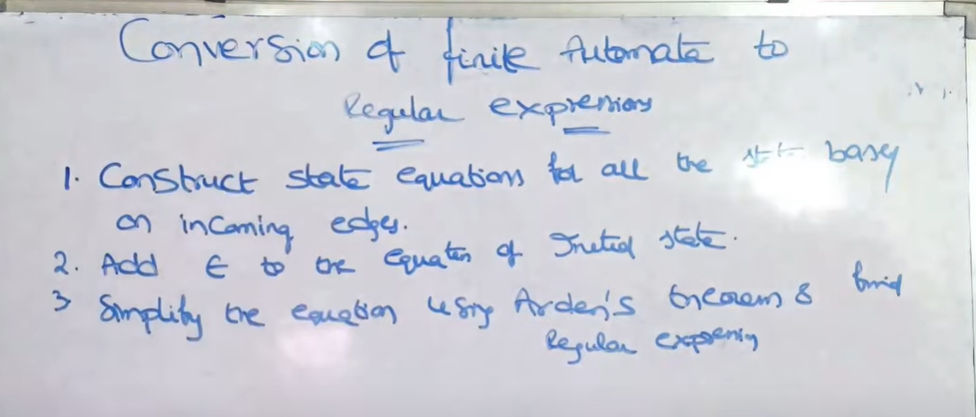 Conversion of finite Automata to
Regular expressions
1. Construct state equations for all the state based
on incoming edges.
2. Add ∈ to the equation of Initial state.
3 Simplify the equation using Arden's theorem & find
Regular expression